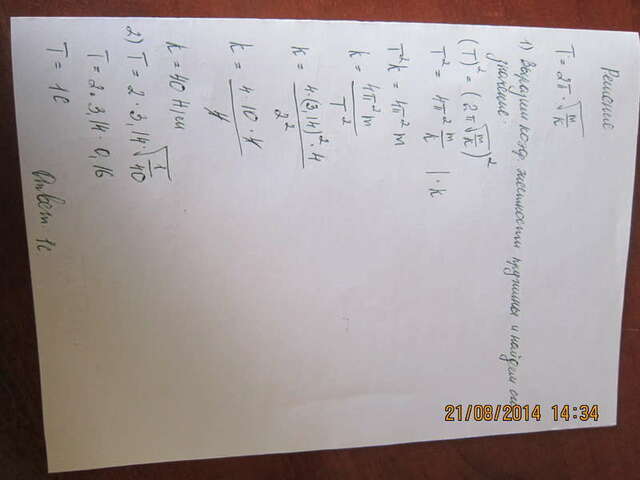 Решение
T = 2π · √m/k
1) Выразим коэф. жесткости пружины и найдем его
значение:
(T)² = (2π √m/k)²
T² = 4π² m/k | · k
T²k = 4π² m
k = 4π² m / T²
k = 4·(3,14)²·4 / 2²
k = 4·10·4 / 4
k = 40 Н/м
2) T = 2 · 3,14 · √1/40
T = 2 · 3,14 · 0,16
T = 1с
Ответ: 1с
21/08/2014 14:34